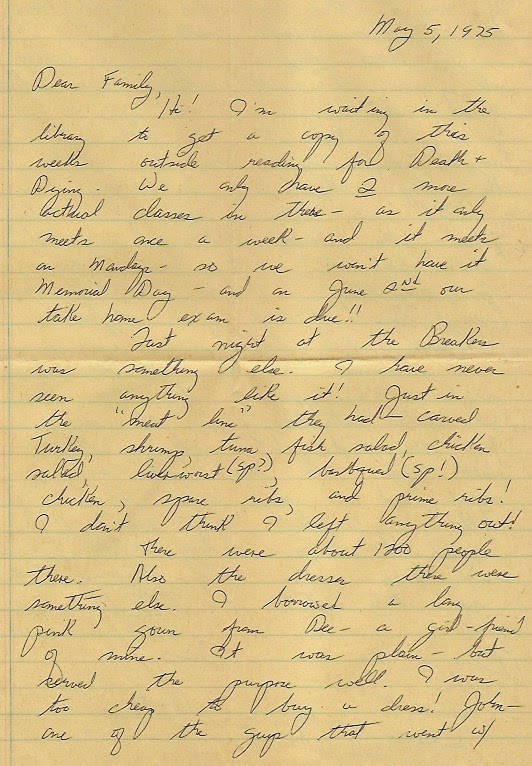 May 5, 1975
Dear Family,
Hi! I'm waiting in the
library to get a copy of this
weeks outside reading for Death +
Dying. We only have 2 more
actual classes in there - as it only
meets once a week - and it meets
on Mondays - so we won't have it
Memorial Day - and on June 2nd our
take home exam is due!!
Last night at the Breakers
was something else. I have never
seen anything like it! Just in
the "meat line" they had - carved
Turkey, shrimp, tuna, fish salad, chicken
salad, liverworst (sp?), barbqued (sp!)
chicken, spare ribs, and prime ribs!
I don't think I left anything out!
There were about 1200 people
there. Also the dresses there were
something else. I borrowed a long
pink gown from Dee - a girl-friend
of mine. It was plain - but
served the purpose well. I was
too cheap to buy a dress! John -
one of the guys that went w/